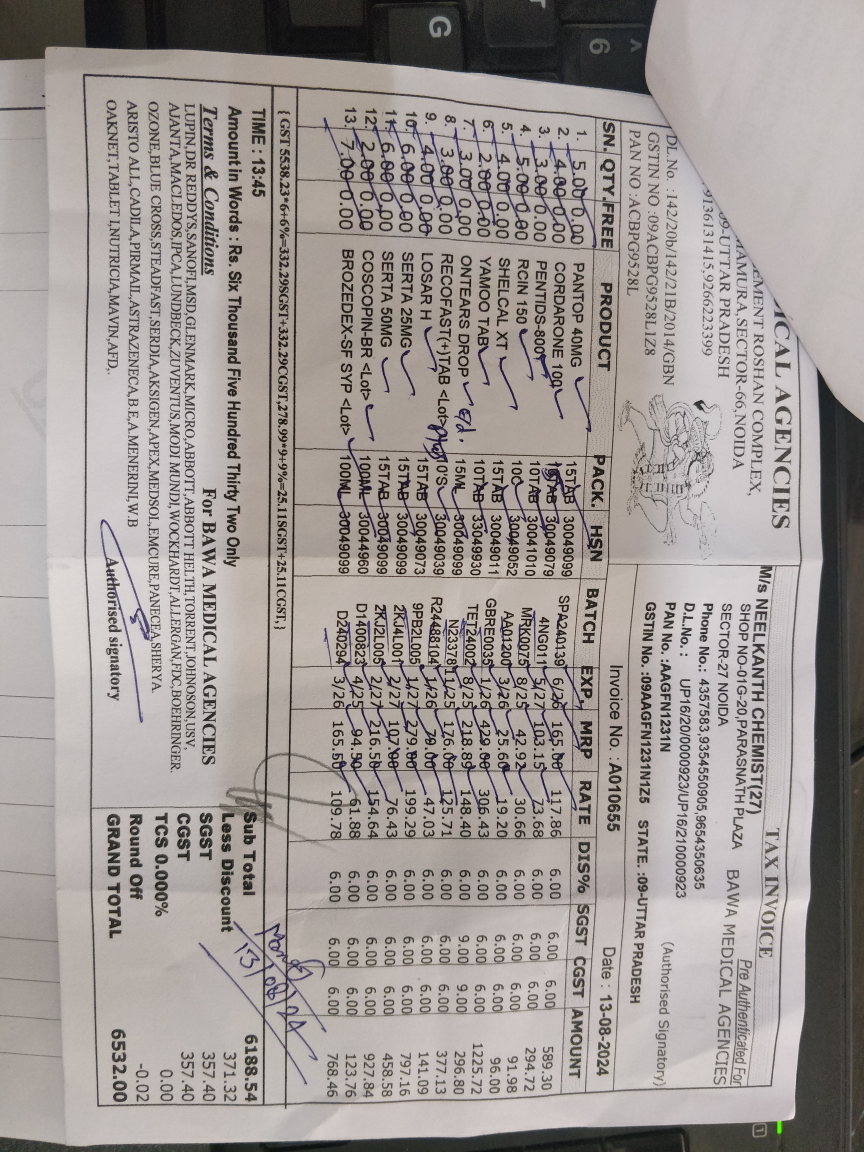 ICAL AGENCIES
EMENT ROSHAN COMPLEX,
MAMURA,SECTOR-66,NOIDA
09-UTTAR PRADESH
9136131415,9266223399
DL.No. :142/20b/142/21B/2014/GBN
GSTIN NO :09ACBPG9528L1Z8
PAN NO :ACBPG9528L
TAX INVOICE
M/s NEELKANTH CHEMIST(27)
SHOP NO-01G-20,PARASNATH PLAZA
SECTOR-27 NOIDA
Phone No.: 4357583,9354550905,9654350635
D.L.No.: UP16/20/0000923/UP16/210000923
PAN No. :AAGFN1231N
GSTIN No. :09AAGFN1231N1Z5 STATE. :09-UTTAR PRADESH
Pre Authenticated For
BAWA MEDICAL AGENCIES
(Authorised Signatory)
Invoice No. :A010655 Date : 13-08-2024
SN. QTY. FREE PRODUCT PACK. HSN BATCH EXP. MRP RATE DIS% SGST CGST AMOUNT
1. 5.00 0.00 PANTOP 40MG 15TAB 30049099 SPA240139 6/26 165.00 117.86 6.00 6.00 6.00 589.30
2. 4.00 0.00 CORDARONE 100 10TAB 30049079 4NG011 5/27 103.15 73.68 6.00 6.00 6.00 294.72
3. 3.00 0.00 PENTIDS-800 10TAB 30041010 MRK0075 8/25 42.92 30.66 6.00 6.00 6.00 91.98
4. 5.00 0.00 RCIN 150 10C 30049052 AA01200 3/26 25.60 19.20 6.00 6.00 6.00 96.00
5. 4.00 0.00 SHELCAL XT 15TAB 30049011 GBRE0035 1/26 429.00 306.43 6.00 6.00 6.00 1225.72
6. 2.00 0.00 YAMOO TAB 10TAB 33049930 TET24002 8/25 218.89 148.40 6.00 9.00 9.00 296.80
7. 3.00 0.00 ONTEARS DROP 15ML 30049099 N23378 1/25 176.00 125.71 6.00 6.00 6.00 377.13
8. 3.00 0.00 RECOFAST(+)TAB <Lot> 10'S 30049039 R24488104 1/26 79.00 47.03 6.00 6.00 6.00 141.09
9. 4.00 0.00 LOSAR H 15TAB 30049073 9PB2L005 1/27 279.00 199.29 6.00 6.00 6.00 797.16
10. 6.00 0.00 SERTA 25MG 15TAB 30049099 2KJ4L001 2/27 107.00 76.43 6.00 6.00 6.00 458.58
11. 6.00 0.00 SERTA 50MG 15TAB 30049099 2KJ2L005 2/27 216.50 154.64 6.00 6.00 6.00 927.84
12. 2.00 0.00 COSCOPIN-BR <Lot> 100ML 30044960 D1400823 4/25 94.50 61.88 6.00 6.00 6.00 123.76
13. 7.00 0.00 BROZEDEX-SF SYP <Lot> 100ML 30049099 D240294 3/26 165.50 109.78 6.00 6.00 6.00 768.46
{ GST 5538.23*6+6%=332.29SGST+332.29CGST,278.99*9+9%=25.11SGST+25.11CGST,}
13/08/24
TIME : 13:45
Amount in Words : Rs. Six Thousand Five Hundred Thirty Two Only
Terms & Conditions
For BAWA MEDICAL AGENCIES
LUPIN,DR REDDYS,SANOFI,MSD,GLENMARK,MICRO,ABBOTT,ABBOTT HELTH,TORRENT,JOHNOSON,USV,
AJANTA,MACLEDOS,IPCA,LUNDBECK,ZUVENTUS,MODI MUNDI,WOCKHARDT,ALLERGAN,FDC,BOEHRINGER,
OZONE,BLUE CROSS,STEADFAST,SERDIA,AKSIGEN,APEX,MEDSOL,EMCURE,PANECEA,SHERYA
ARISTO ALL,CADILA,PIRMAIL,ASTRAZENECA,B.E,A.MENERINI,W.B
OAKNET,TABLET I,NUTRICIA,MAVIN,AFD,.
Authorised signatory
Sub Total 6188.54
Less Discount 371.32
SGST 357.40
CGST 357.40
TCS 0.000% 0.00
Round Off -0.02
GRAND TOTAL 6532.00
G
6